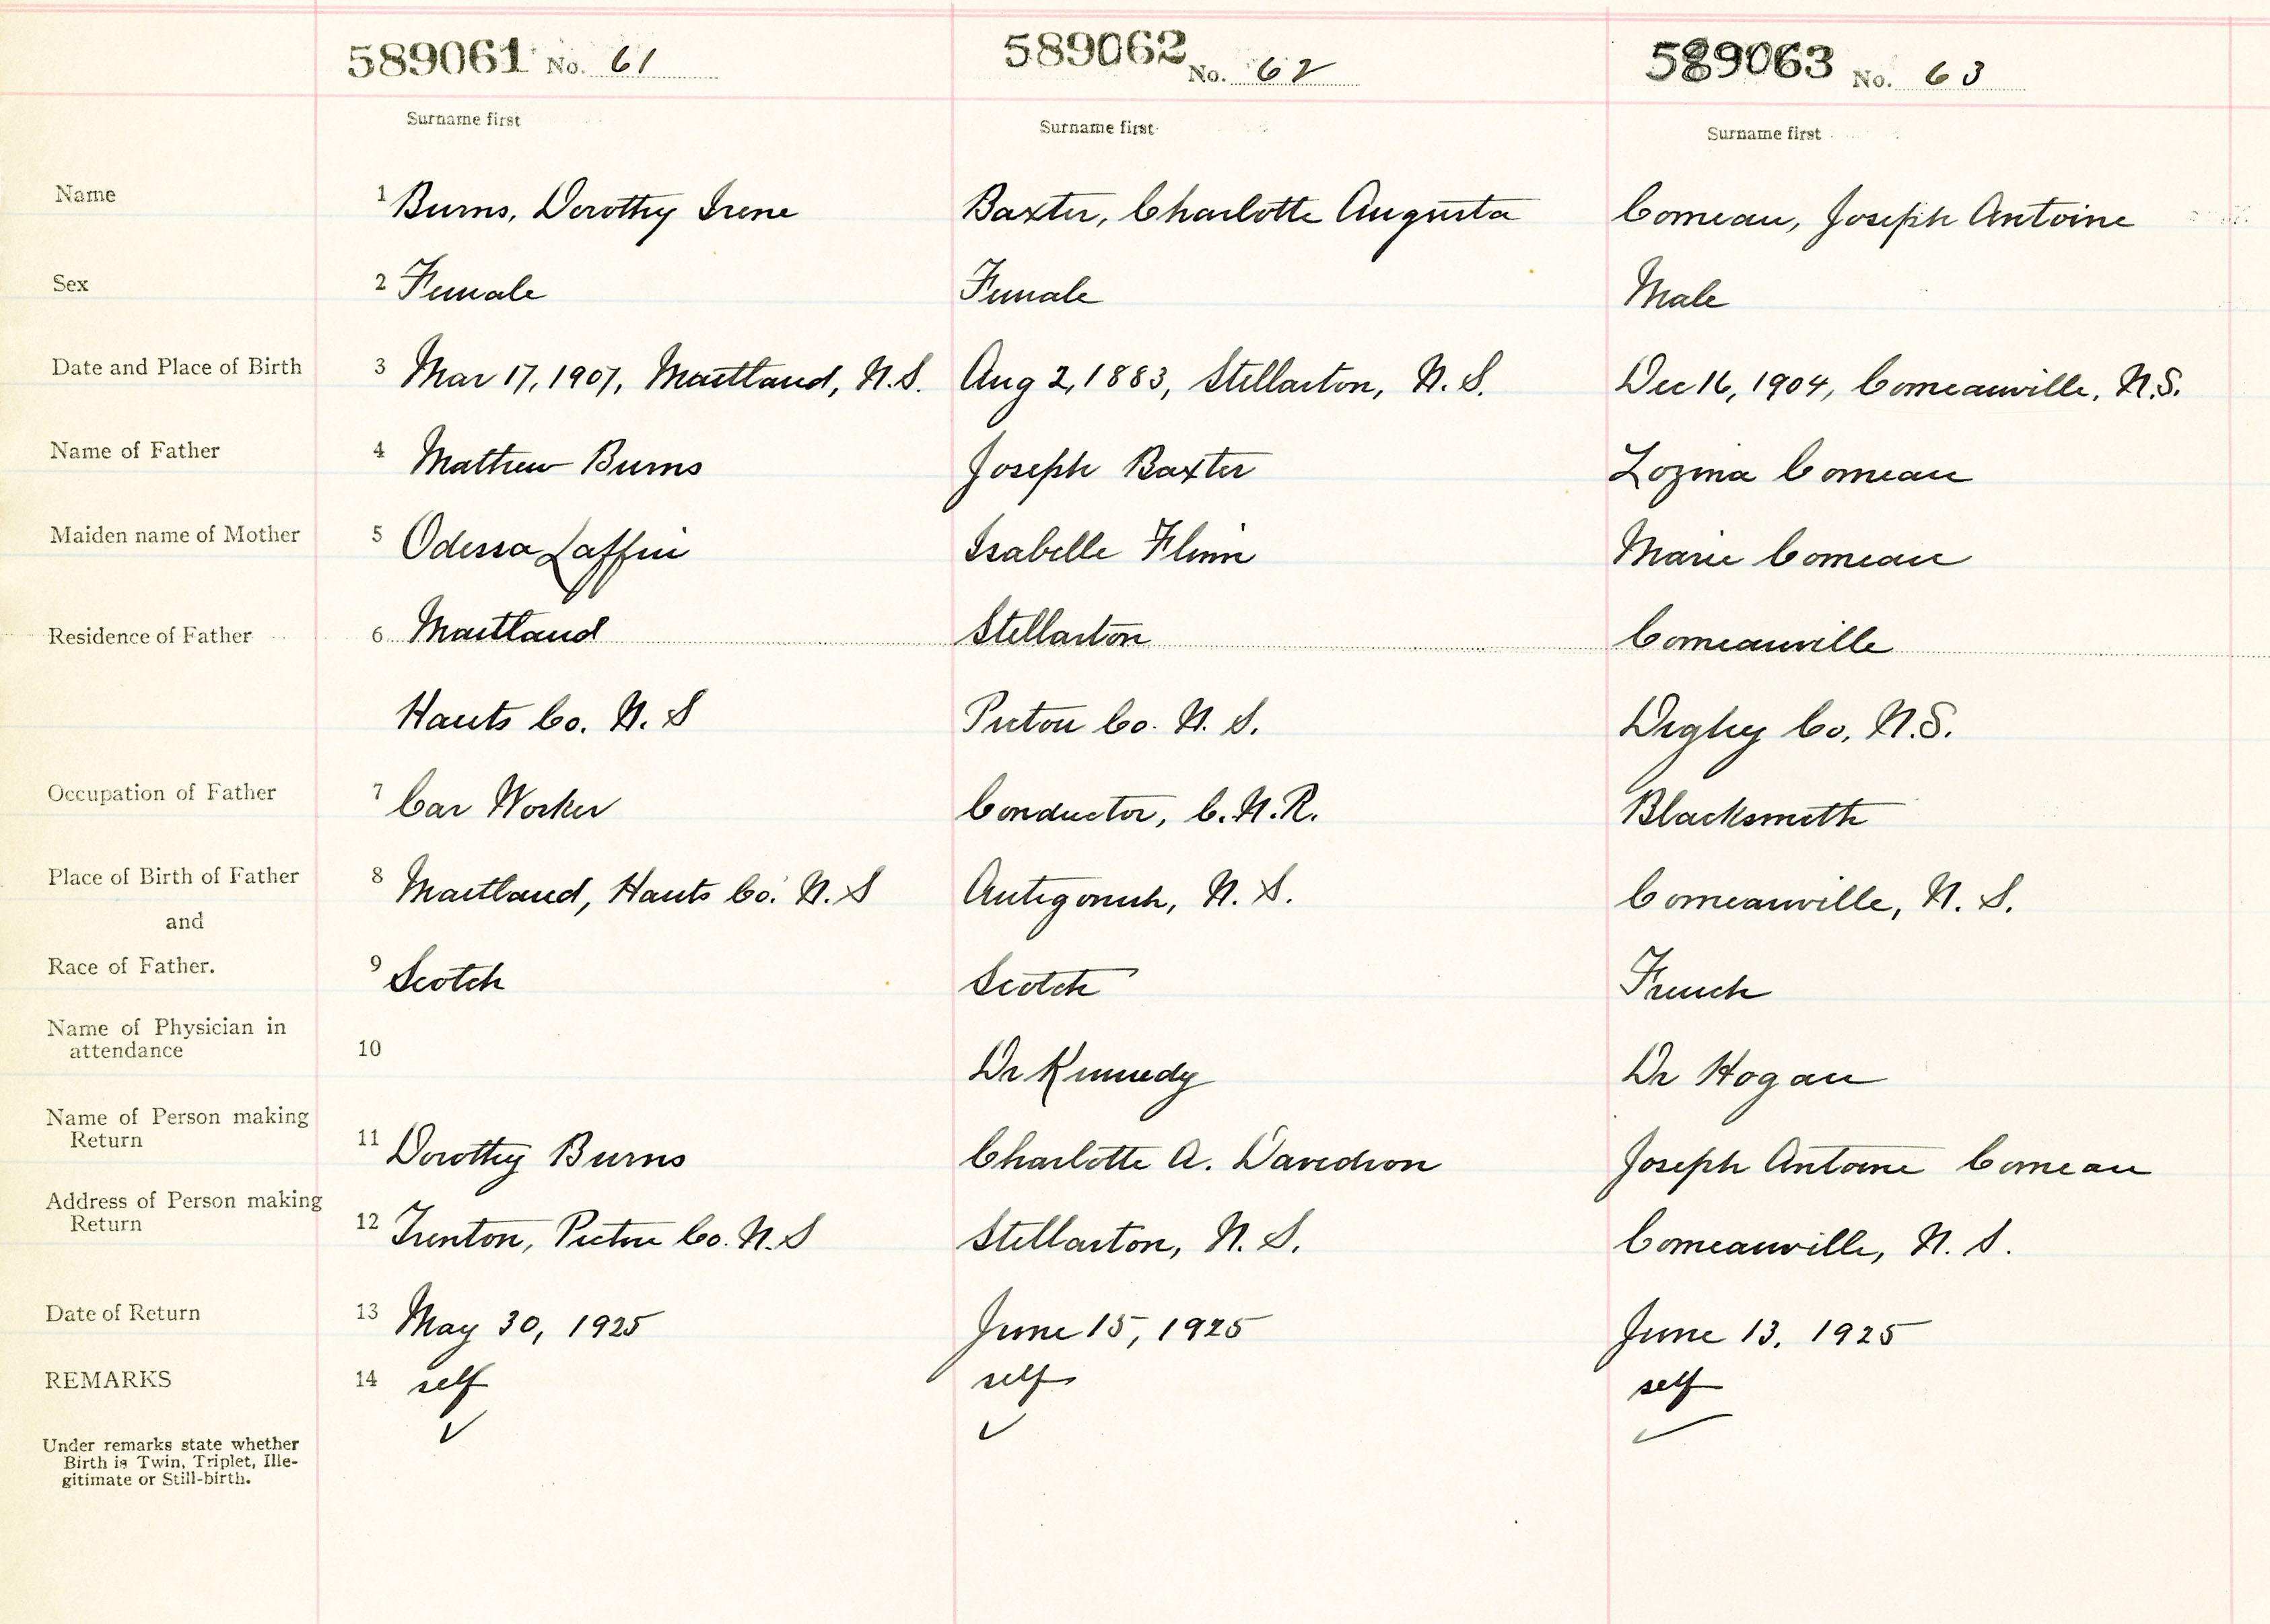 589061 No. 61
589062 No. 62
589063 No. 63
Surname first
Surname first
Surname first
Name
1 Burns, Dorothy Irene
Baxter, Charlotte Augusta
Comeau, Joseph Antoine
Sex
2 Female
Female
Male
Date and Place of Birth
3 Mar 17, 1907, Maitland, N.S.
Aug 2, 1883, Stellarton, N.S.
Dec 16, 1904, Comeauville, N.S.
Name of Father
4 Mathew Burns
Joseph Baxter
Lozina Comeau
Maiden name of Mother
5 Odessa Laffin
Isabelle Flinn
Marie Comeau
Residence of Father
6 Maitland
Stellarton
Comeauville
Hants Co. N.S
Pictou Co. N.S.
Digby Co, N.S.
Occupation of Father
7 Car Worker
Conductor, C.N.R.
Blacksmith
Place of Birth of Father
8 Maitland, Hants Co. N.S
Antigonish, N.S.
Comeauville, N.S.
and
Race of Father.
9 Scotch
Scotch
French
Name of Physician in
attendance
10
Dr Kennedy
Dr Hogan
Name of Person making
Return
11 Dorothy Burns
Charlotte A. Davidson
Joseph Antoine Comeau
Address of Person making
Return
12 Trenton, Pictou Co. N.S
Stellarton, N.S.
Comeauville, N.S.
Date of Return
13 May 30, 1925
June 15, 1925
June 13, 1925
REMARKS
14 self
self
self
Under remarks state whether
Birth is Twin, Triplet, Ille-
gitimate or Still-birth.